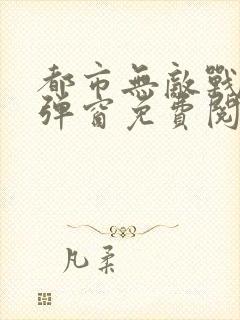 都市無敵戰
彈窗免費閱
凡柔